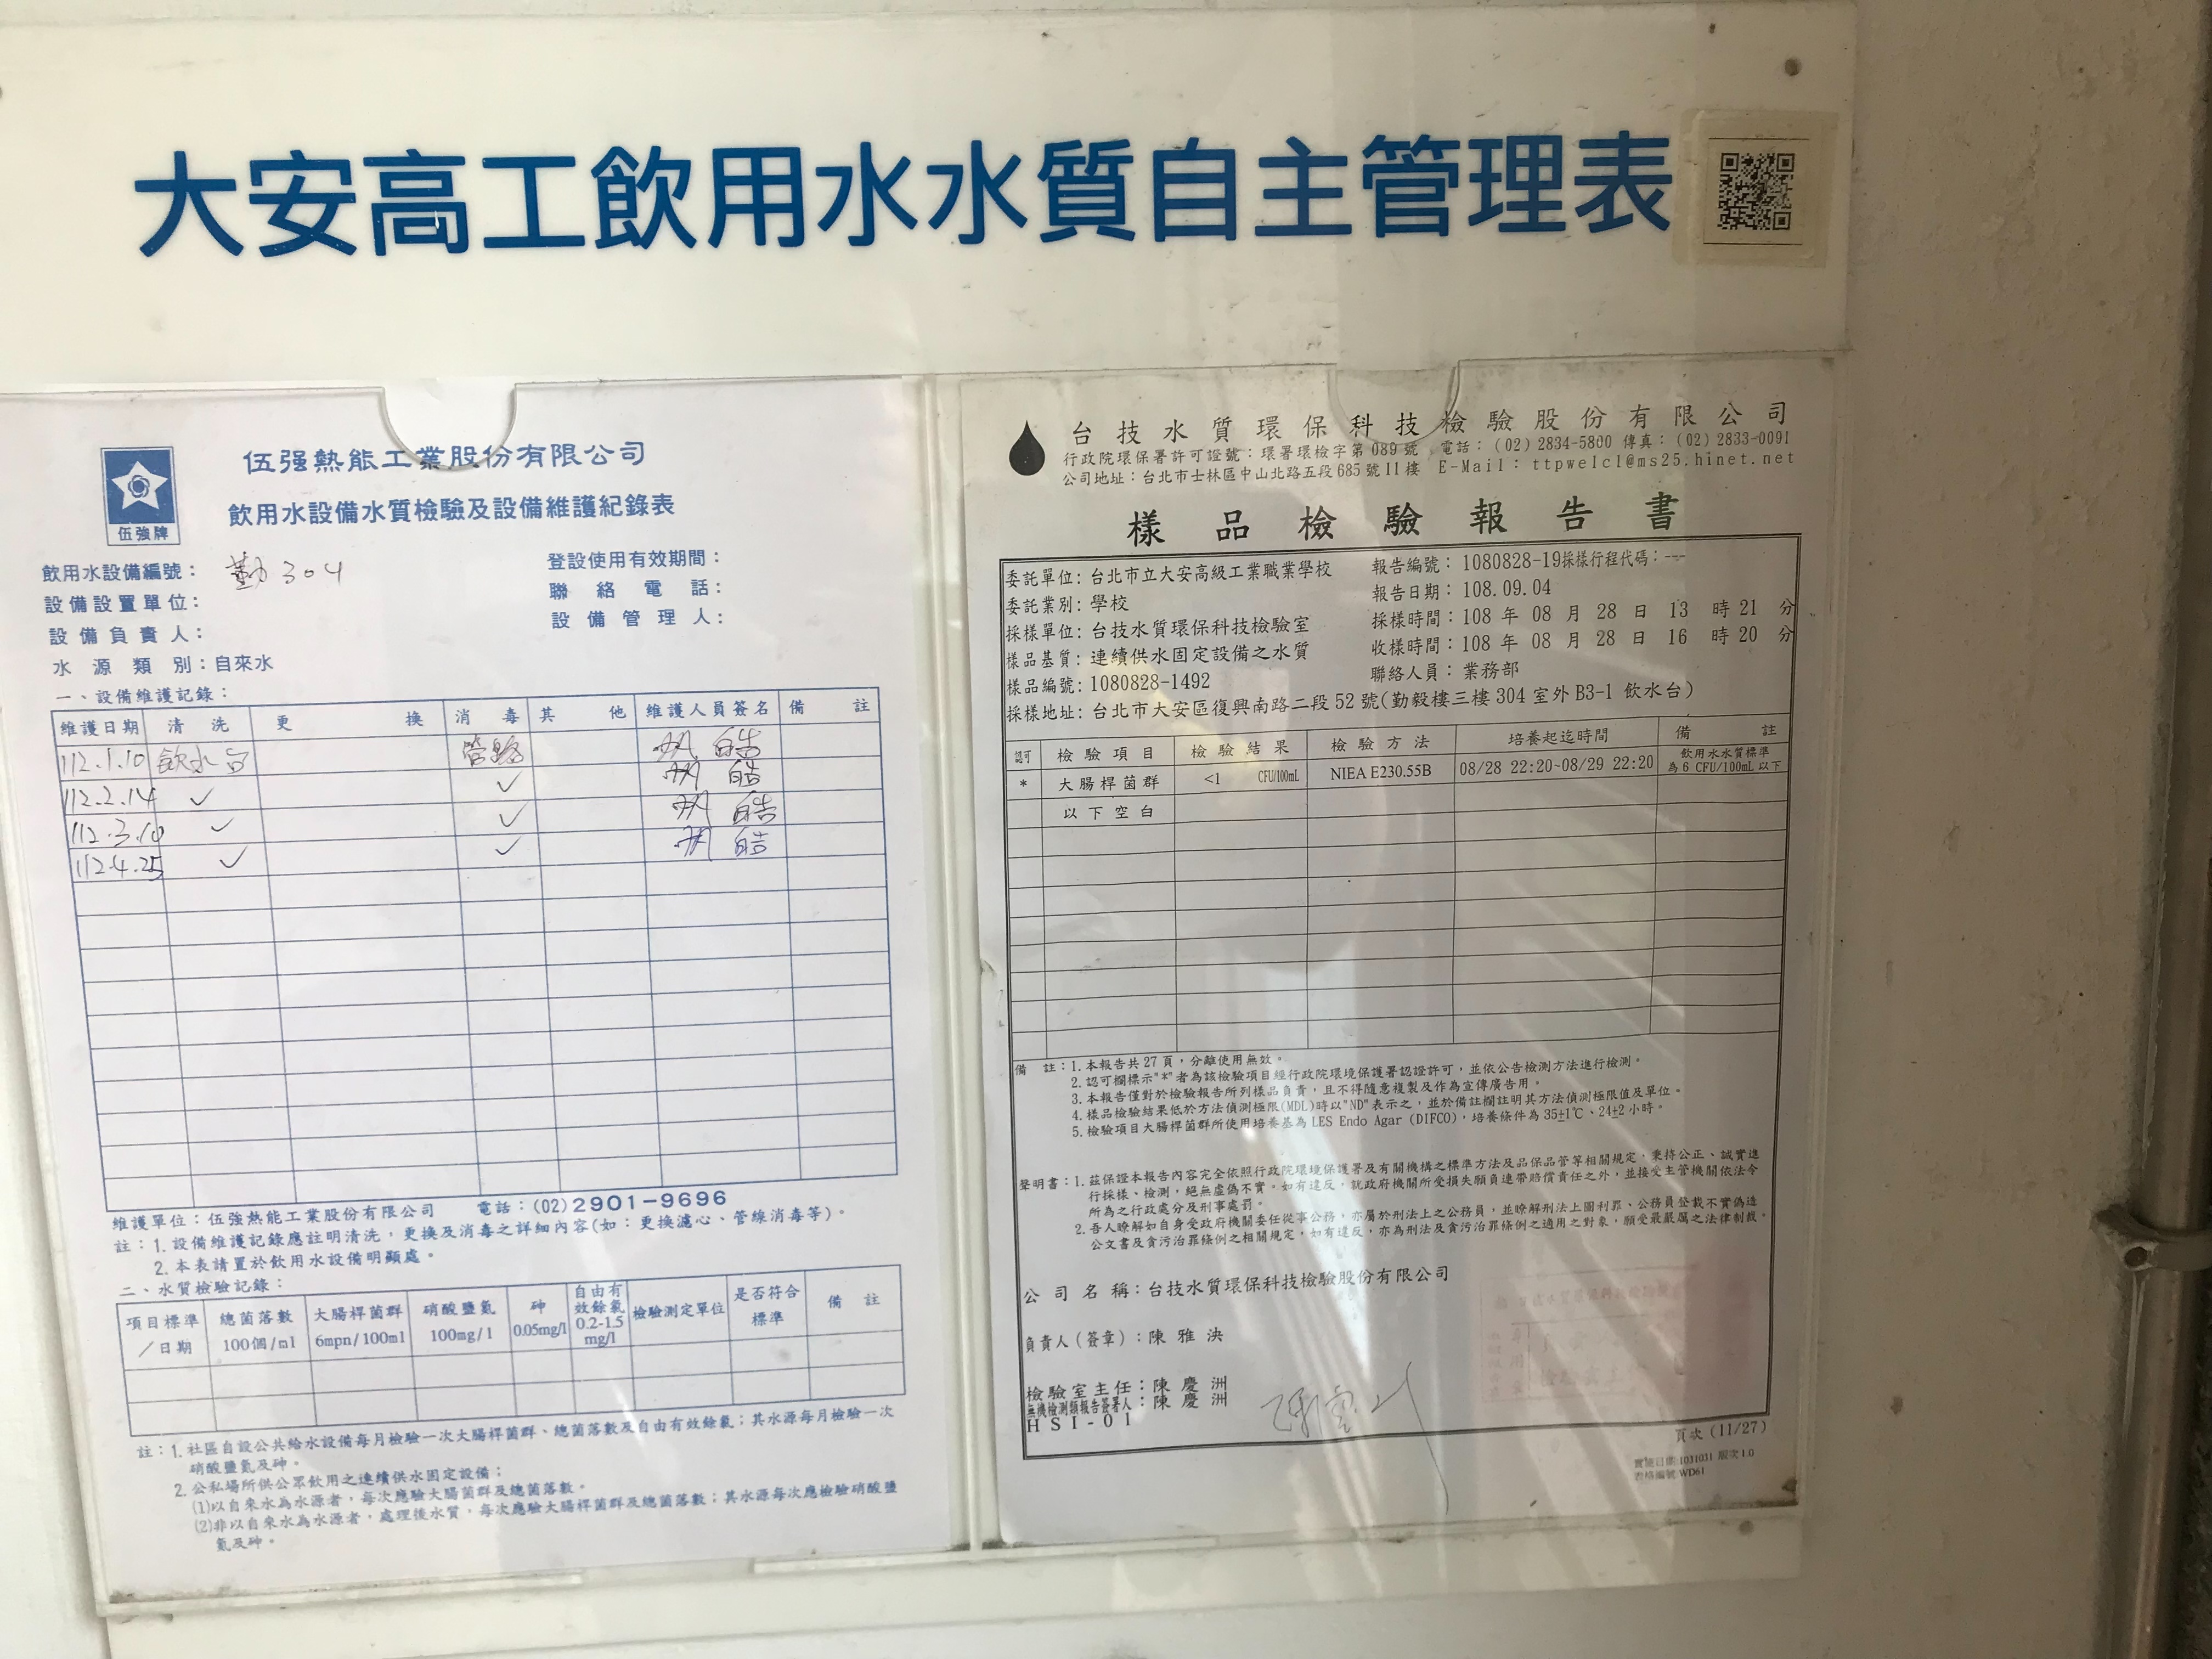 大安高工飲用水水質自主管理表
伍强熱能工業股份有限公司
飲用水設備水質檢驗及設備維護紀錄表
伍強牌
飲用水設備編號：勤304
登設使用有效期間：
設備設置單位：
聯絡電話：
設備負責人：
設備管理人：
水源類別：自來水
一、設備維護記錄：
維護日期 清洗 更換 消毒 其他 維護人員簽名 備註
112.1.10 飲水台 管路 皓
112.2.14 ✓ ✓ 皓
112.3. ✓ ✓ 皓
112.4.25 ✓ ✓ 皓
維護單位：伍強熱能工業股份有限公司 電話：(02)2901-9696
註：1. 設備維護記錄應註明清洗，更換及消毒之詳細內容(如：更換濾心、管線消毒等)。
2. 本表請置於飲用水設備明顯處。
二、水質檢驗記錄：
項目標準／日期 總菌落數 100個/ml 大腸桿菌群 6mpn/100ml 硝酸鹽氮 100mg/l 砷 0.05mg/l 自由有效餘氯 0.2-1.5 mg/l 檢驗測定單位 是否符合標準 備註
註：1. 社區自設公共給水設備每月檢驗一次大腸桿菌群、總菌落數及自由有效餘氯；其水源每月檢驗一次
硝酸鹽氮及砷。
2. 公私場所供公眾飲用之連續供水固定設備；
(1)以自來水為水源者，每次應驗大腸菌群及總菌落數。
(2)非以自來水為水源者，處理後水質，每次應驗大腸桿菌群及總菌落數；其水源每次應檢驗硝酸鹽
氮及砷。
台技水質環保科技檢驗股份有限公司
行政院環保署許可證號：環署環檢字第089號 電話：(02)2834-5800 傳真：(02)2833-0091
公司地址：台北市士林區中山北路五段685號11樓 E-Mail：ttpwelcl@ms25.hinet.net
樣品檢驗報告書
委託單位：台北市立大安高級工業職業學校
報告編號：1080828-19採樣行程代碼：---
委託業別：學校
報告日期：108.09.04
採樣單位：台技水質環保科技檢驗室
採樣時間：108年08月28日13時21分
樣品基質：連續供水固定設備之水質
收樣時間：108年08月28日16時20分
樣品編號：1080828-1492
聯絡人員：業務部
採樣地址：台北市大安區復興南路二段52號(勤毅樓三樓304室外B3-1 飲水台)
認可 檢驗項目 檢驗結果 檢驗方法 培養起迄時間 備註
* 大腸桿菌群 <1 CFU/100mL NIEA E230.55B 08/28 22:20~08/29 22:20 飲用水水質標準為6 CFU/100mL以下
以下空白
備註：1. 本報告共27頁，分離使用無效。
2. 認可欄標示"*"者為該檢驗項目經行政院環境保護署認證許可，並依公告檢測方法進行檢測。
3. 本報告僅對於檢驗報告所列樣品負責，且不得隨意複製及作為宣傳廣告用。
4. 樣品檢驗結果低於方法偵測極限(MDL)時以"ND"表示之，並於備註欄註明其方法偵測極限值及單位。
5. 檢驗項目大腸桿菌群所使用培養基為LES Endo Agar (DIFCO)，培養條件為35±1℃、24±2小時。
聲明書：1. 茲保證本報告內容完全依照行政院環境保護署及有關機構之標準方法及品保品管等相關規定，秉持公正、誠實進
行採樣、檢測，絕無虛偽不實。如有違反，就政府機關所受損失願負連帶賠償責任之外，並接受主管機關依法令
所為之行政處分及刑事處罰。
2. 吾人瞭解如自身受政府機關委任從事公務，亦屬於刑法上之公務員，並瞭解刑法上圖利罪、公務員登載不實偽造
公文書及貪污治罪條例之相關規定，如有違反，亦為刑法及貪污治罪條例之適用之對象，願受最嚴厲之法律制裁。
公司名稱：台技水質環保科技檢驗股份有限公司
負責人(簽章)：陳雅泱
檢驗室主任：陳慶洲
無機檢測類報告簽署人：陳慶洲
HSI-01
頁次(11/27)
實施日期:1031031 版次1.0
表格編號:WD61